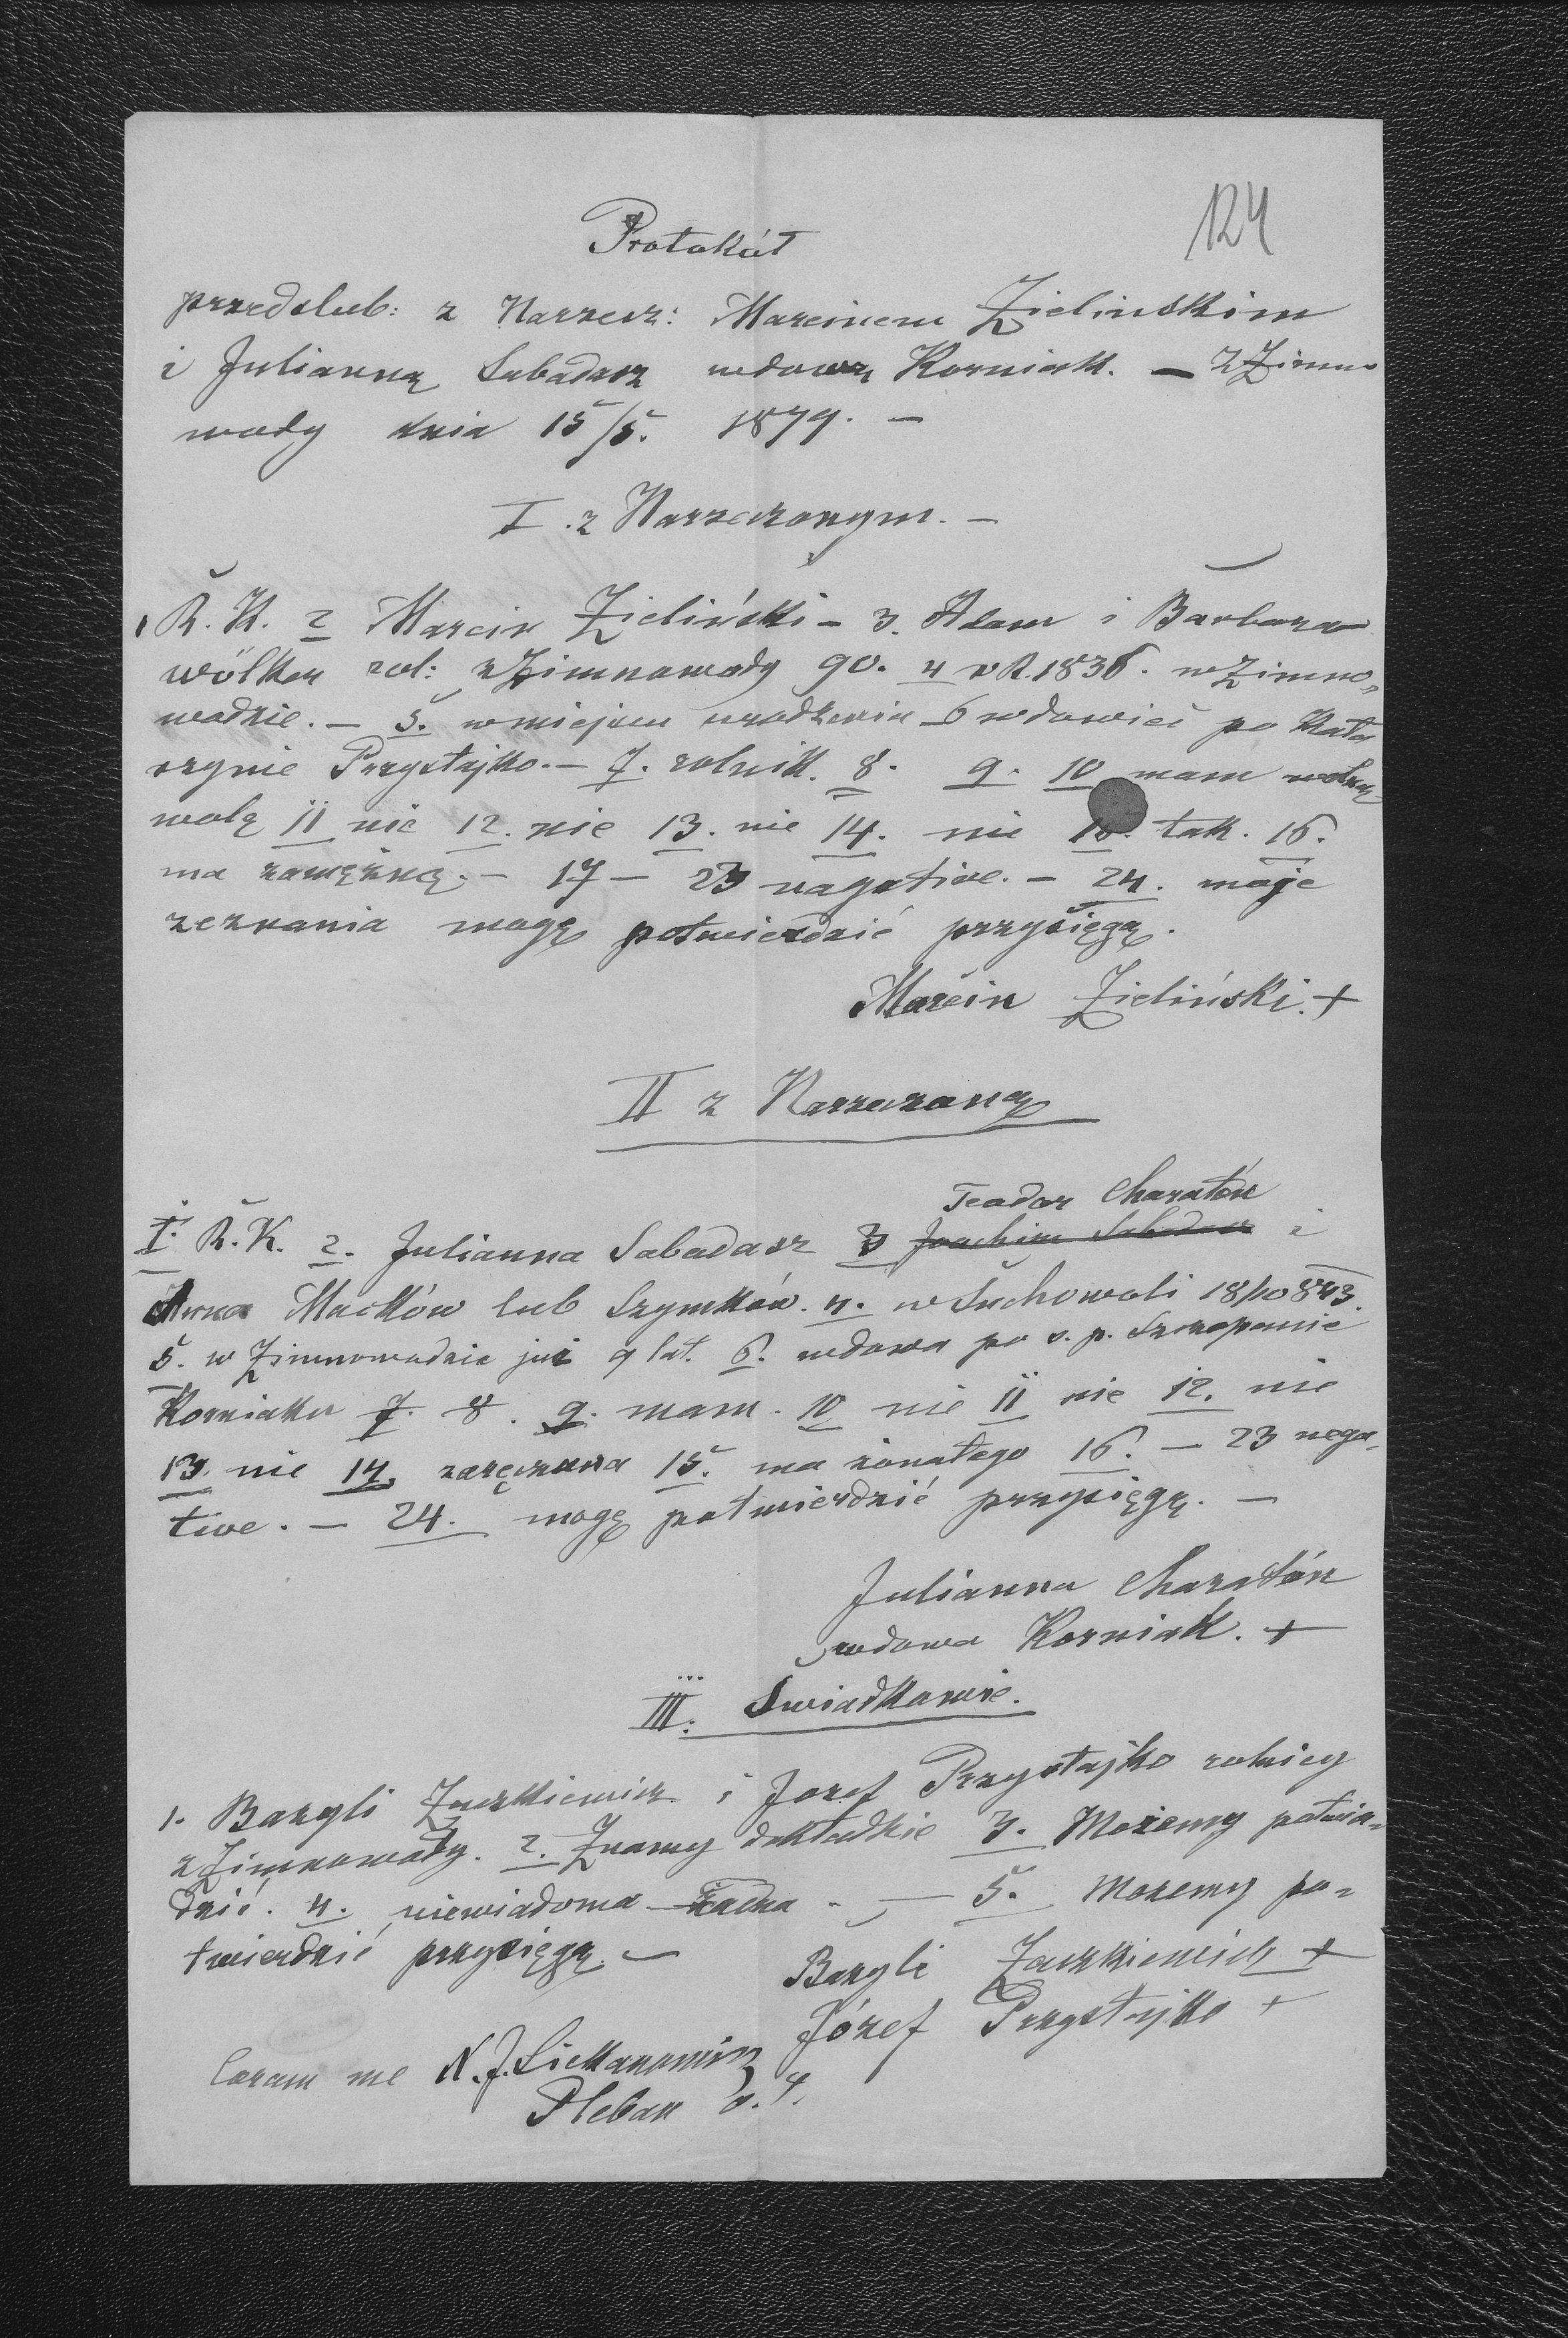 124
Protokół
przedslub: z Narzecz: Marcinem Zielinskim
i Julianną Sabadasz wdową Korniak. — z Zimno
wody dnia 15/5. 1879. —
I. z Narzeczonym. —
1 R. K. 2 Marcin Zieliński – 3. Adam i Barbara
Wölker rol: z Zimnowody 90. 4 v R. 1836. w Zimno„
wodzie. – 5. w miejscu urodzenia 6 wdowiec po Kata
rzynie Przystajko. – 7. rolnik. 8. 9. 10 mam wolną
wolę 11 nie 12. nie 13. nie 14. nie 15. tak. 16.
ma zamężną. – 17 – 23 nagative. – 24. moje
zeznania mogę potwierdzić przysięgą.
Marcin Zieliński. +
II z Narzeczoną
Teodor Charatón
I. R. K. 2. Julianna Sabadasz 3 Joachim Sabadasz i
Anna Maćków lub Szymków. 4. w Suchowoli 18/10 843.
5. w Zimnowodzie już 9 lat. 6. wdowa po s. p. Szczepanie
Korniaku 7. 8. 9. mam. 10 nie 11 nie 12. nie
13. nie 14. zaręczona 15. ma żonatego 16. — 23 nega„
tive. — 24. mogę potwierdzić przysięgą. —
Julianna Charatón
wdowa Korniak. +
III. Swiadkowie.
1. Bazyli Zaczkiewicz i Jozef Przystajko rolnicy
z Zimnowody. 2. Znamy dokładnie 3. Możemy potwier„
dzić. 4. niewiadoma żadna. — 5. Mozemy po„
twierdzić przysięgą. —
Bazyli Zaczkiewicz +
Józef Przystajko +
Coram me N. J.
Pleban o. ł.